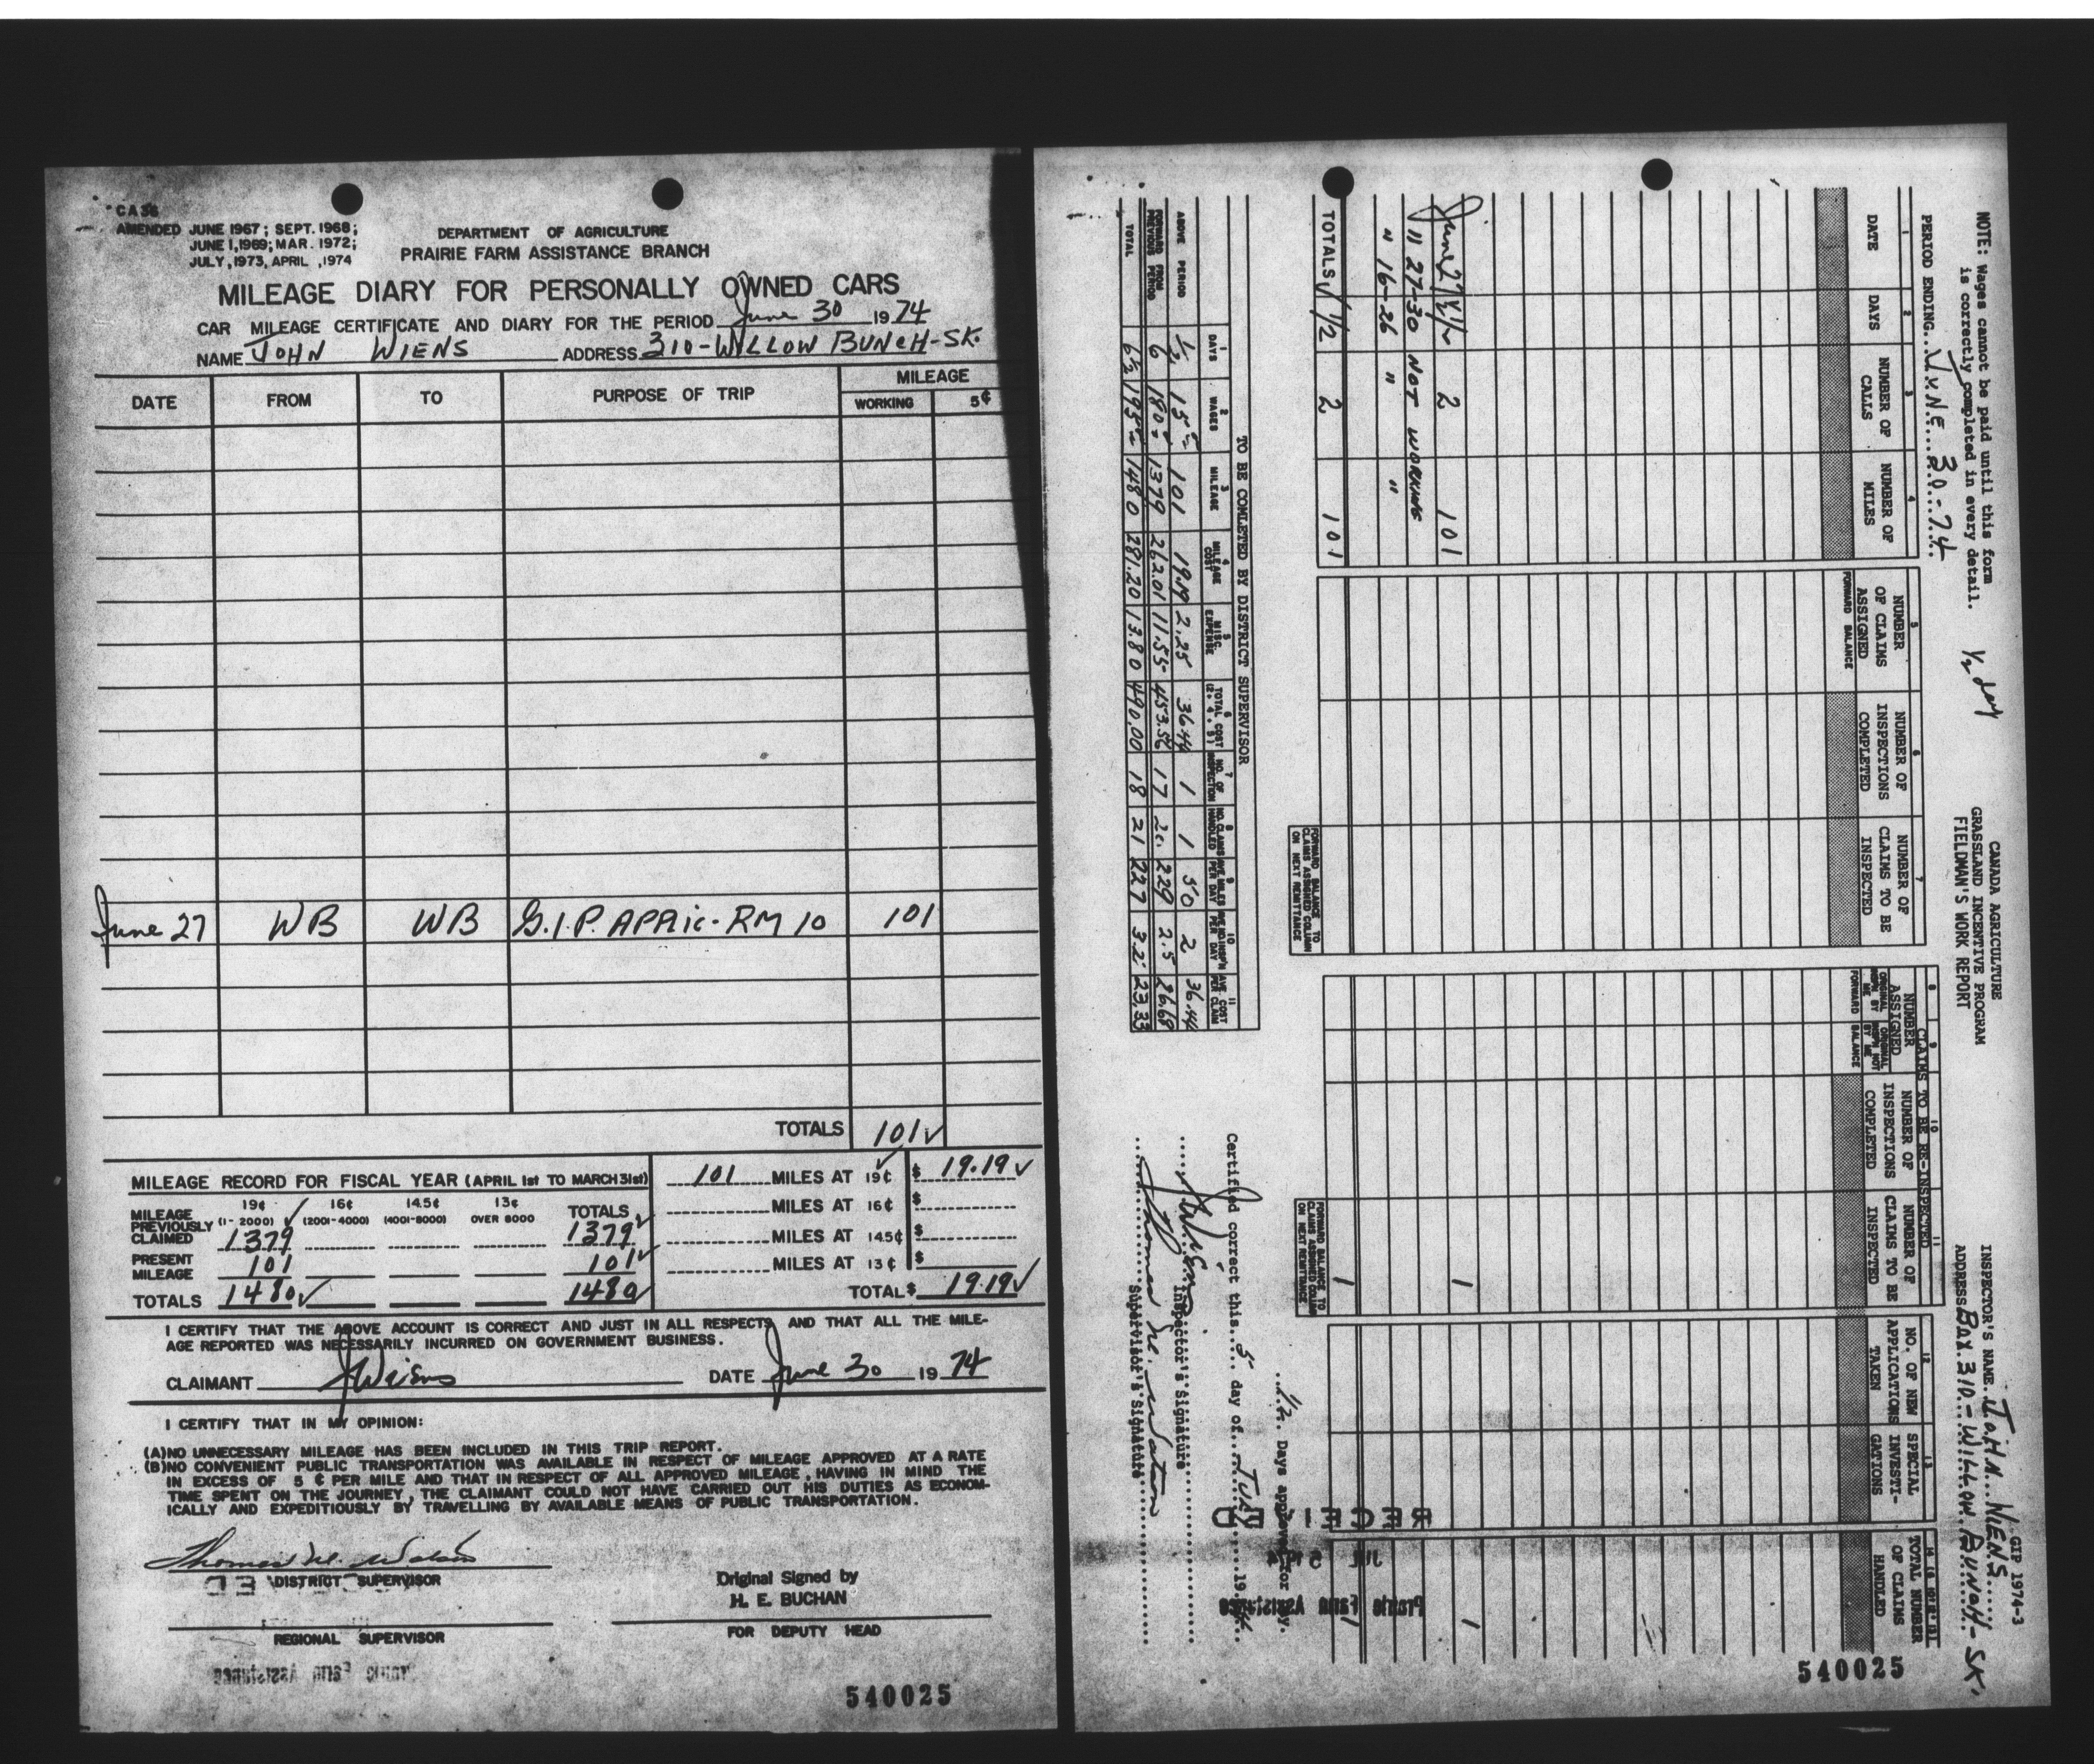 CA 36
AMENDED JUNE 1967; SEPT. 1968;
JUNE 1, 1969; MAR. 1972;
JULY, 1973, APRIL, 1974
DEPARTMENT OF AGRICULTURE
PRAIRIE FARM ASSISTANCE BRANCH
MILEAGE DIARY FOR PERSONALLY OWNED CARS
CAR MILEAGE CERTIFICATE AND DIARY FOR THE PERIOD June 30 1974
NAME JOHN WIENS ADDRESS 310-WILLOW BUNCH-SK.
DATE FROM TO PURPOSE OF TRIP MILEAGE
WORKING 5¢
June 27 WB WB G.I.P. APPlic. RM 10 101
TOTALS 101✓
MILEAGE RECORD FOR FISCAL YEAR (APRIL 1st TO MARCH 31st)
19¢ 16¢ 14.5¢ 13¢
MILEAGE PREVIOUSLY CLAIMED (1-2000) (2001-4000) (4001-8000) OVER 8000 TOTALS
1379 1379
PRESENT MILEAGE 101 101✓
TOTALS 1480✓ 1480✓
101 MILES AT 19¢ $ 19.19✓
MILES AT 16¢ $
MILES AT 14.5¢ $
MILES AT 13¢ $
TOTAL $ 19.19✓
I CERTIFY THAT THE ABOVE ACCOUNT IS CORRECT AND JUST IN ALL RESPECTS AND THAT ALL THE MILE-
AGE REPORTED WAS NECESSARILY INCURRED ON GOVERNMENT BUSINESS.
CLAIMANT J Wiens DATE June 30 1974
I CERTIFY THAT IN MY OPINION:
(A) NO UNNECESSARY MILEAGE HAS BEEN INCLUDED IN THIS TRIP REPORT.
(B) NO CONVENIENT PUBLIC TRANSPORTATION WAS AVAILABLE IN RESPECT OF MILEAGE APPROVED AT A RATE
IN EXCESS OF 5 ¢ PER MILE AND THAT IN RESPECT OF ALL APPROVED MILEAGE, HAVING IN MIND THE
TIME SPENT ON THE JOURNEY, THE CLAIMANT COULD NOT HAVE CARRIED OUT HIS DUTIES AS ECONOM-
ICALLY AND EXPEDITIOUSLY BY TRAVELLING BY AVAILABLE MEANS OF PUBLIC TRANSPORTATION.
Thomas M. Watson
DISTRICT SUPERVISOR
REGIONAL SUPERVISOR
Prairie Farm Assistance
Original Signed by
H. E. BUCHAN
FOR DEPUTY HEAD
540025
GIP 1974-3
CANADA AGRICULTURE
GRASSLAND INCENTIVE PROGRAM
FIELDMAN'S WORK REPORT
NOTE: Wages cannot be paid until this form
is correctly completed in every detail.
1/2 day
INSPECTOR'S NAME JOHN WIENS
PERIOD ENDING JUNE 30-74
ADDRESS BOX 310-WILLOW BUNCH-SK.
CLAIMS TO BE RE-INSPECTED
1 DATE
2 DAYS
3 NUMBER OF CALLS
4 NUMBER OF MILES
5 NUMBER OF CLAIMS ASSIGNED
FORWARD BALANCE
6 NUMBER OF INSPECTIONS COMPLETED
7 NUMBER OF CLAIMS TO BE INSPECTED
NUMBER ASSIGNED
8 ORIGINAL INSPN BY ME
9 ORIGINAL INSPN NOT BY ME
FORWARD BALANCE
10 NUMBER OF INSPECTIONS COMPLETED
11 NUMBER OF CLAIMS TO BE INSPECTED
12 NO. OF NEW APPLICATIONS TAKEN
13 SPECIAL INVESTI-GATIONS
14 TOTAL NUMBER OF CLAIMS HANDLED
June 27 1/2 2 101 1 1
" 27-30 NOT WORKING
" 16-26 " "
TOTALS 1/2 2 101 1 1
FORWARD BALANCE TO CLAIMS ASSIGNED COLUMN ON NEXT REMITTANCE
FORWARD BALANCE TO CLAIMS ASSIGNED COLUMN ON NEXT REMITTANCE
TO BE COMLETED BY DISTRICT SUPERVISOR
1 DAYS 2 WAGES 3 MILEAGE 4 MILEAGE COST 5 MISC. EXPENSE 6 TOTAL COST 7 NO. OF INSPECTION 8 NO. CLAIMS HANDLED 9 AVE. MILES PER DAY 10 AVE NO INSP'N PER DAY 11 AVE. COST PER CLAIM
ABOVE PERIOD 1/2 15 101 19.19 2.25 36.44 1 1 50 2 36.44
FORWARD FROM PREVIOUS PERIOD 6 180 1379 262.01 11.55 453.56 17 20 229 2.5 26.68
TOTAL 6 1/2 195 1480 281.20 13.80 490.00 18 21 227 3.2 23.33
1/2 Days approved for pay.
Certified correct this 5 day of July 1974
J Wiens Inspector's Signature
Thomas M. Watson Supervisor's Signature
RECEIVED
JUL 5 1974
Prairie Farm Assistance
540025